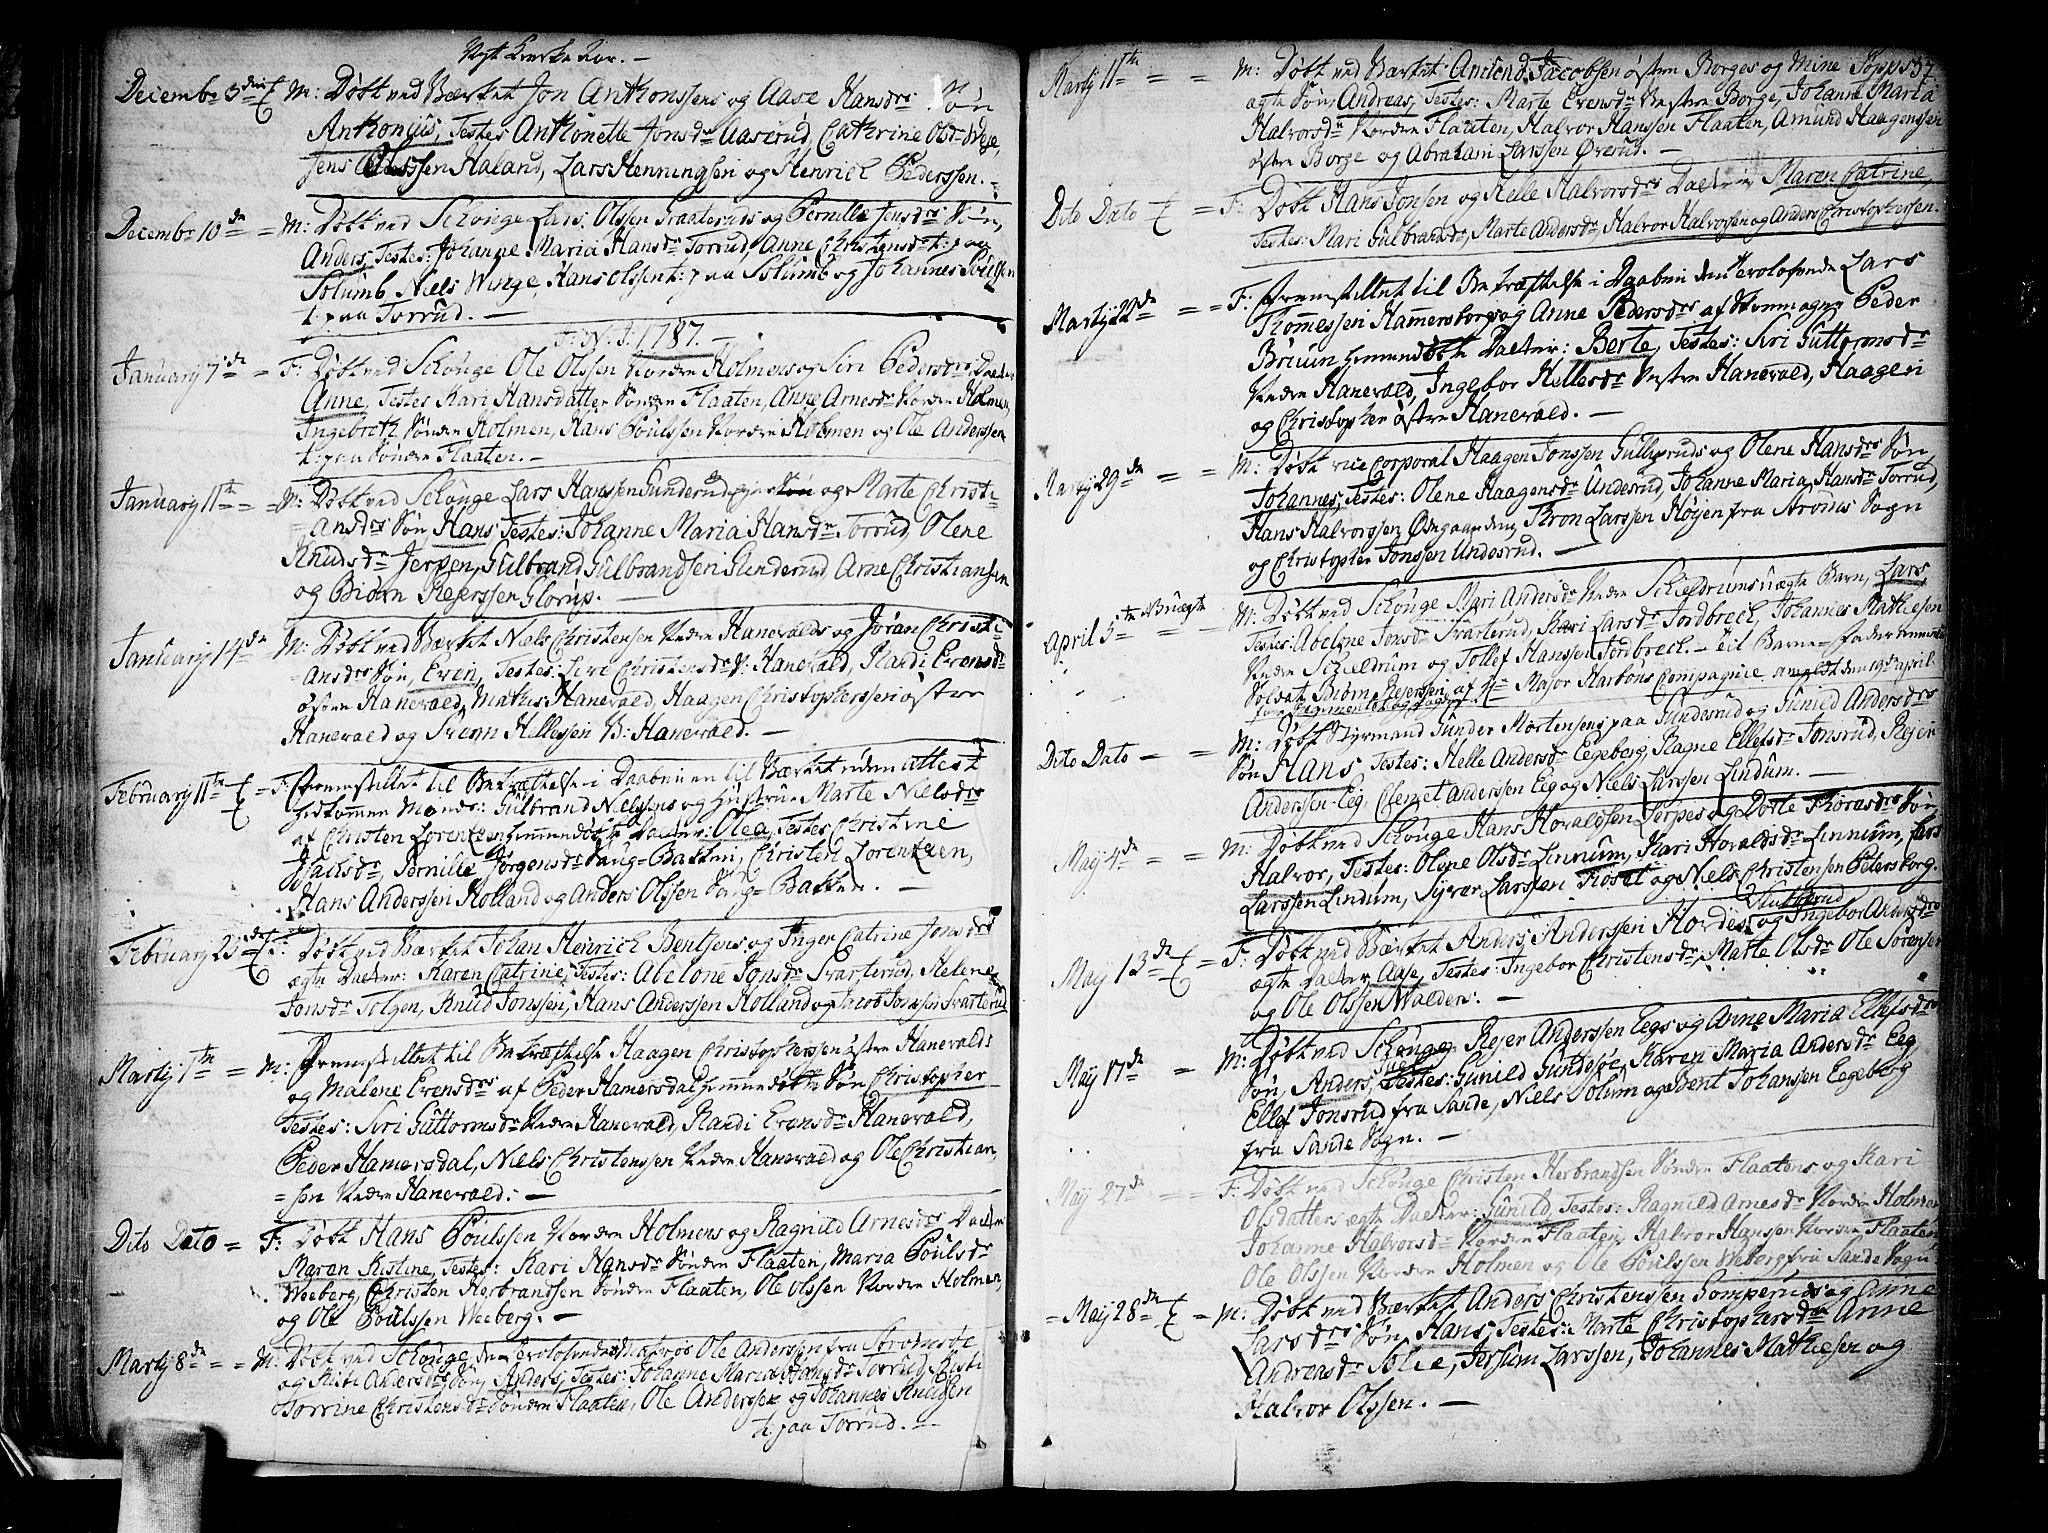 Nyt Kirke Aar. —
Decembr 3die M: Døbt ved Værket Jon Anthonssens og Aase Hansdrs Søn
Anthonius, Testes Anthonette Jonsdr Aaserud, Cathrine Olsdr
Olssen Haland, Lars Henningsen og Henrich Pederssen. —
Decembr 10de = M: Døbt ved Schouge Lars Olssen Svaterud og Pernille Jensdrs Søn,
Anders, Testes: Johanne Maria Hansdr Torrud, Anne Christensdr t: paa
Solumb, Niels Winge, Hans Olssen t: paa Solumb og Johannes Poulsen
t: paa Torrud. —
F. N. J. 1787. —
January 7de = F: Døbt ved Schouge Ole Olssen Nordre Holmens og Siri Pedersdrs Datter
Anne, Testes Kari Hansdatter Søndre Flaaten, Anne Arnesdr Nordre Holmen,
Ingebreth Søndre Holmen, Hans Poulssen Nordre Holmen og Ole Anderssen
t: paa Søndre Flaaten. —
January 11te = M: Døbt ved Schouge Lars Hanssen Gunderud og Marte Christi-
ansdrs Søn Hans, Testes: Johanne Maria Hansdr Torrud, Olene
Knudsdr Jerpen, Gulbrand Gulbrandsen Gunderud, Arne Christiansen
og Biørn Rejerssen Glorup. —
January 14de M: Døbt ved Værket Niels Christensen Nedre Hanevalds og Jøran Christi-
ansdrs Søn, Even, Testes: Siri Christensdr N: Hanevald, Randi Evensdr
østre Hanevald, Mathis Hanevald, Haagen Christopherssen østre
Hanevald og Svenn Hellessen V: Hanevald. —
February 11te = F: Fremstillet til Bekræftelse i Daaben en til Værket uden attest
hidkommen Mands: Gulbrand Nielsens og Hustrue Marte Nielsdrs
af Christen Lorentzen hiemmedøbte Datter: Olea, Testes Christine
Isachsdr, Pernille Jørgensdr Saug-Bakken, Christen Lorentzen,
Hans Anderssen Holland og Anders Olssen Saug-Bakken. —
February 25de F: Døbt ved Værket Johan Henrich Bentsens og Inger Catrine Jonsdrs
ægte Datter: Karen Catrine, Testes: Abelone Jonsdr Svarterud, Helene
Jonsdr Tolgen, Knud Jonssen, Hans Anderssen Holland og Jacob Jonssen Svarterud
Martij 7de = M: Fremstillet til Bekræftelse Haagen Christopherssen østre Hanevalds
og Malene Evensdrs af Peder Hamersdal hiemmedøbte Søn Christopher
Testes: Siri Guttormsdr Nedre Hanevald, Randi Evensdr Hanevald,
Peder Hamersdal, Niels Christenssen Nedre Hanevald og Ole Christian-
= sen Nedre Hanevald. —
Dito Dato = F: Døbt Hans Poulssen Nordre Holmens og Ragnild Arnesdrs Datter
Maren Kistine, Testes: Kari Hansdr Søndre Flaaten, Maria Poulsdr
Weeberg, Christen Herbrandsen Søndre Flaaten, Ole Olssen Nordre Holmen,
og Ole Poulssen Weeberg. —
Martij 8de = M: Døbt ved Schouge den Trolofvede Matros Ole Anderssen fra Strømsøe
og Kisti Andersdrs Søn, Anders, Testes: Johanne Maria Hansdr Torrud, Kisti
Torrine Christensdr Søndre Flaaten, Ole Anderssen og Johannes Knudsen
t: paa Torrud. —
Martij 11te = M: Døbt ved Værket Amund Jacobsen østre Borges og Mine
ægte Søn, Andreas, Testes: Marte Evensdr Vestre Borge, Johanne Maria
Halvorsdr Nordre Flaaten, Halvor Hanssen Flaaten, Amund Haagenssen
østre Borge og Abraham Larssen Ørerud. —
Dito Dato = F: Døbt Hans Jonsen og Helle Halvorsdrs Datter Maren Catrine,
Testes: Mari Gulbrandsdr, Marte Andersdr, Halvor Halvorsen og Anders Christophersen.
Martij 22de = F: Fremstillet til Bekræftelse i Daaben den Trolofvede Lars
Thomessen Hamersborgs og Anne Pedersdrs af Peder
Bruun hiemmedøbte Datter: Berte, Testes: Siri Guttormsdr
Nedre Hanevald, Ingebor Hellesdr Vestre Hanevald, Haagen
og Christopher østre Hanevald. —
Martij 29de = M: Døbt vice Corporal Haagen Jonssen Gulliksruds og Olene Hansdrs Søn,
Johannes, Testes: Olene Haagensdr Underud, Johanne Maria Hansdr Torrud,
Hans Halvorssen Ødegaarden, Thron Larssen Høyen fra Strøms Sogn
og Christopher Jonssen Underud. —
April 5te Nb uægte M: Døbt ved Schouge Mari Andersdr Nedre Schieldrums uægte Barn, Lars,
Testes: Abelone Jonsdr Svarterud, Kari Larsdr Jordbrech, Johannes Mathiesen
Nedre Schieldrum og Tollef Hanssen Jordbrech. — til Barnefader
Soldat Biørn Rejerssen af Hr Major Harboes Compagnie anmeldt den 19de april
Dito Dato — = M: Døbt Styrmand Gunder Mortensens paa Gunderud og Gunild Andersdrs
Søn Hans, Testes: Helle Andersdr Eegeberg, Ragne Ellefsdr Jonsrud, Rejer
Anderssen Eeg, Clemet Anderssen Eeg og Niels Larssen Lindum. —
May 4de = M: Døbt ved Schouge Hans Hovaldsen Jerpes og Dorte Thoresdrs Søn,
Halvor, Testes: Olene Olsdr Linnum, Kari Hovaldsdr Linnum, Lars
Larssen Lindum, Syver Larssen Fioset og Niels Christensen Petersborg.
May 13de = F: Døbt ved Værket Anders Anderssen Hordes og Ingebor Andersdrs
ægte Datter Aase, Testes: Ingebor Christensdr, Marte Olsdr, Ole Sørensen
og Ole Olssen Walder. —
May 17de = M: Døbt ved Schouge Rejer Anderssen Eegs og Anne Maria Ellefsdrs
Søn, Anders, Testes: Gunild Gundesøe, Karen Maria Andersdr Eeg,
Ellef Jonsrud fra Sande, Niels Solum og Bent Johanssen Eegeberg
fra Sande Sogn. —
May 27de = F: Døbt ved Schouge Christen Herbrandsen Søndre Flaatens og Kari
Olsdatters ægte Datter: Gunild, Testes: Ragnild Arnesdr Nordre Holmen
Johanne Halvorsdr Nordre Flaaten, Halvor Hanssen Nordre Flaaten
Ole Olssen Nordre Holmen og Ole Poulssen Weberg fra Sande Sogn.
= May 28de = M: Døbt ved Værket Anders Christenssen Gomperuds og Anne
Larsdrs Søn, Hans, Testes: Marte Christophersdr Anne
Andreasdr Solie, Larssen, Johannes Mathiesen og
Halvor Olssen. —